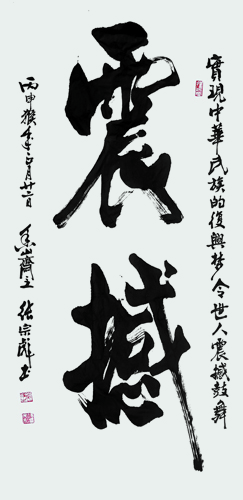 實現中華民族的復興梦令世人震撼鼓舞
震撼
丙申猴年正月廿二日 香山齋主 張宗彪書